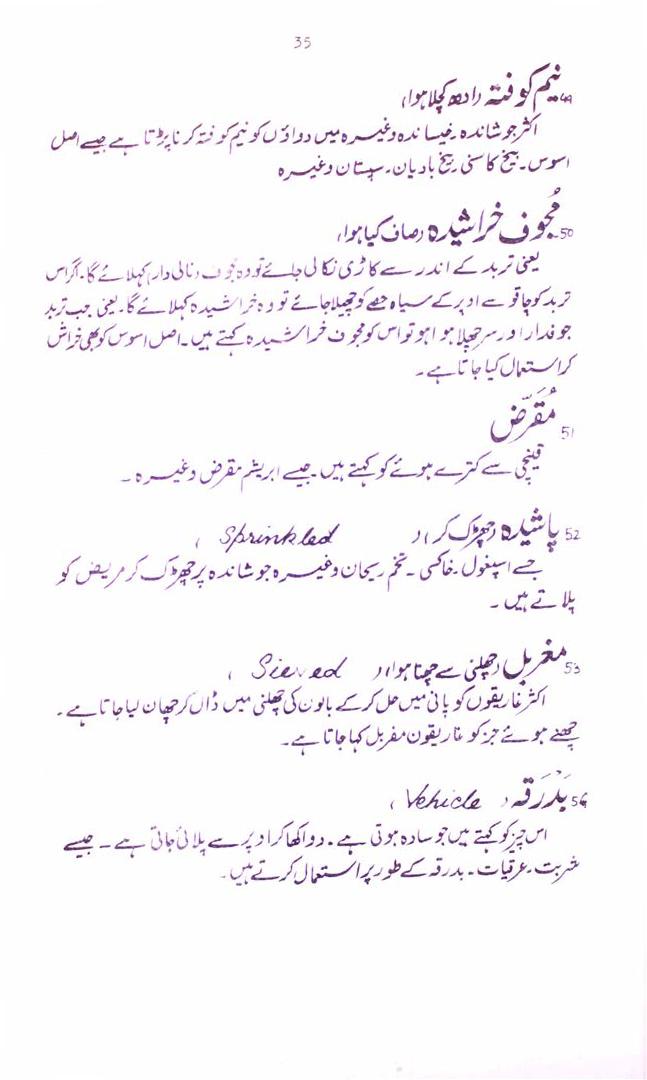 35
49 نیم کوفتہ (ادھ کچلا ہوا)
اکثر جوشاندہ۔خیساندہ وغیرہ میں دواؤں کو نیم کوفتہ کرنا پڑتا ہے جیسے اصل
اسوس۔ بیخ کاسنی ۔بیخ بادیان۔سپستان وغیرہ
50۔ مُجوف خراشیدہ (صاف کیا ہوا)
یعنی تربد کے اندر سے کاڑی نکالی جائے تو وہ مجوف (نالی دار) کہلائے گا۔ اگر اس
تربد کو چاقو سے اوپر کے سیاہ حصے کو چھیلا جائے تو وہ خراشیدہ کہلائے گا۔ یعنی جب تربد
جوفدار اور سرچھلا ہوا ہو تو اس کو مجوف خراشیدہ کہتے ہیں۔ اصل اسوس کو بھی خراش
کر استعمال کیا جاتا ہے۔
51 مُقَرّض
قینچی سے کترے ہوئے کو کہتے ہیں۔ جیسے ابریشم مقرض وغیرہ ۔
52 پاشیدہ (چھڑک کر) ( Sprinkled )
جسے اسپغول ۔خاکسی ۔ تخم ریحان وغیرہ جوشاندہ پر چھڑک کر مریض کو
پلاتے ہیں ۔
53 مغربل (چھلنی سے چھنا ہوا) ( Sieved )
اکثر غاریقون کو پانی میں حل کر کے بالوں کی چھلنی میں ڈال کر چھان لیا جاتا ہے ۔
چھنے ہوئے جز کو غاریقون مغربل کہا جاتا ہے۔
54 بَدْرَقہ ( Vehicle )
اس چیز کو کہتے ہیں جو سادہ ہوتی ہے ۔ دوا کھا کر اوپر سے پلائی جاتی ہے ۔ جیسے
شربت ۔عرقیات ۔ بدرقہ کے طور پر استعمال کرتے ہیں۔